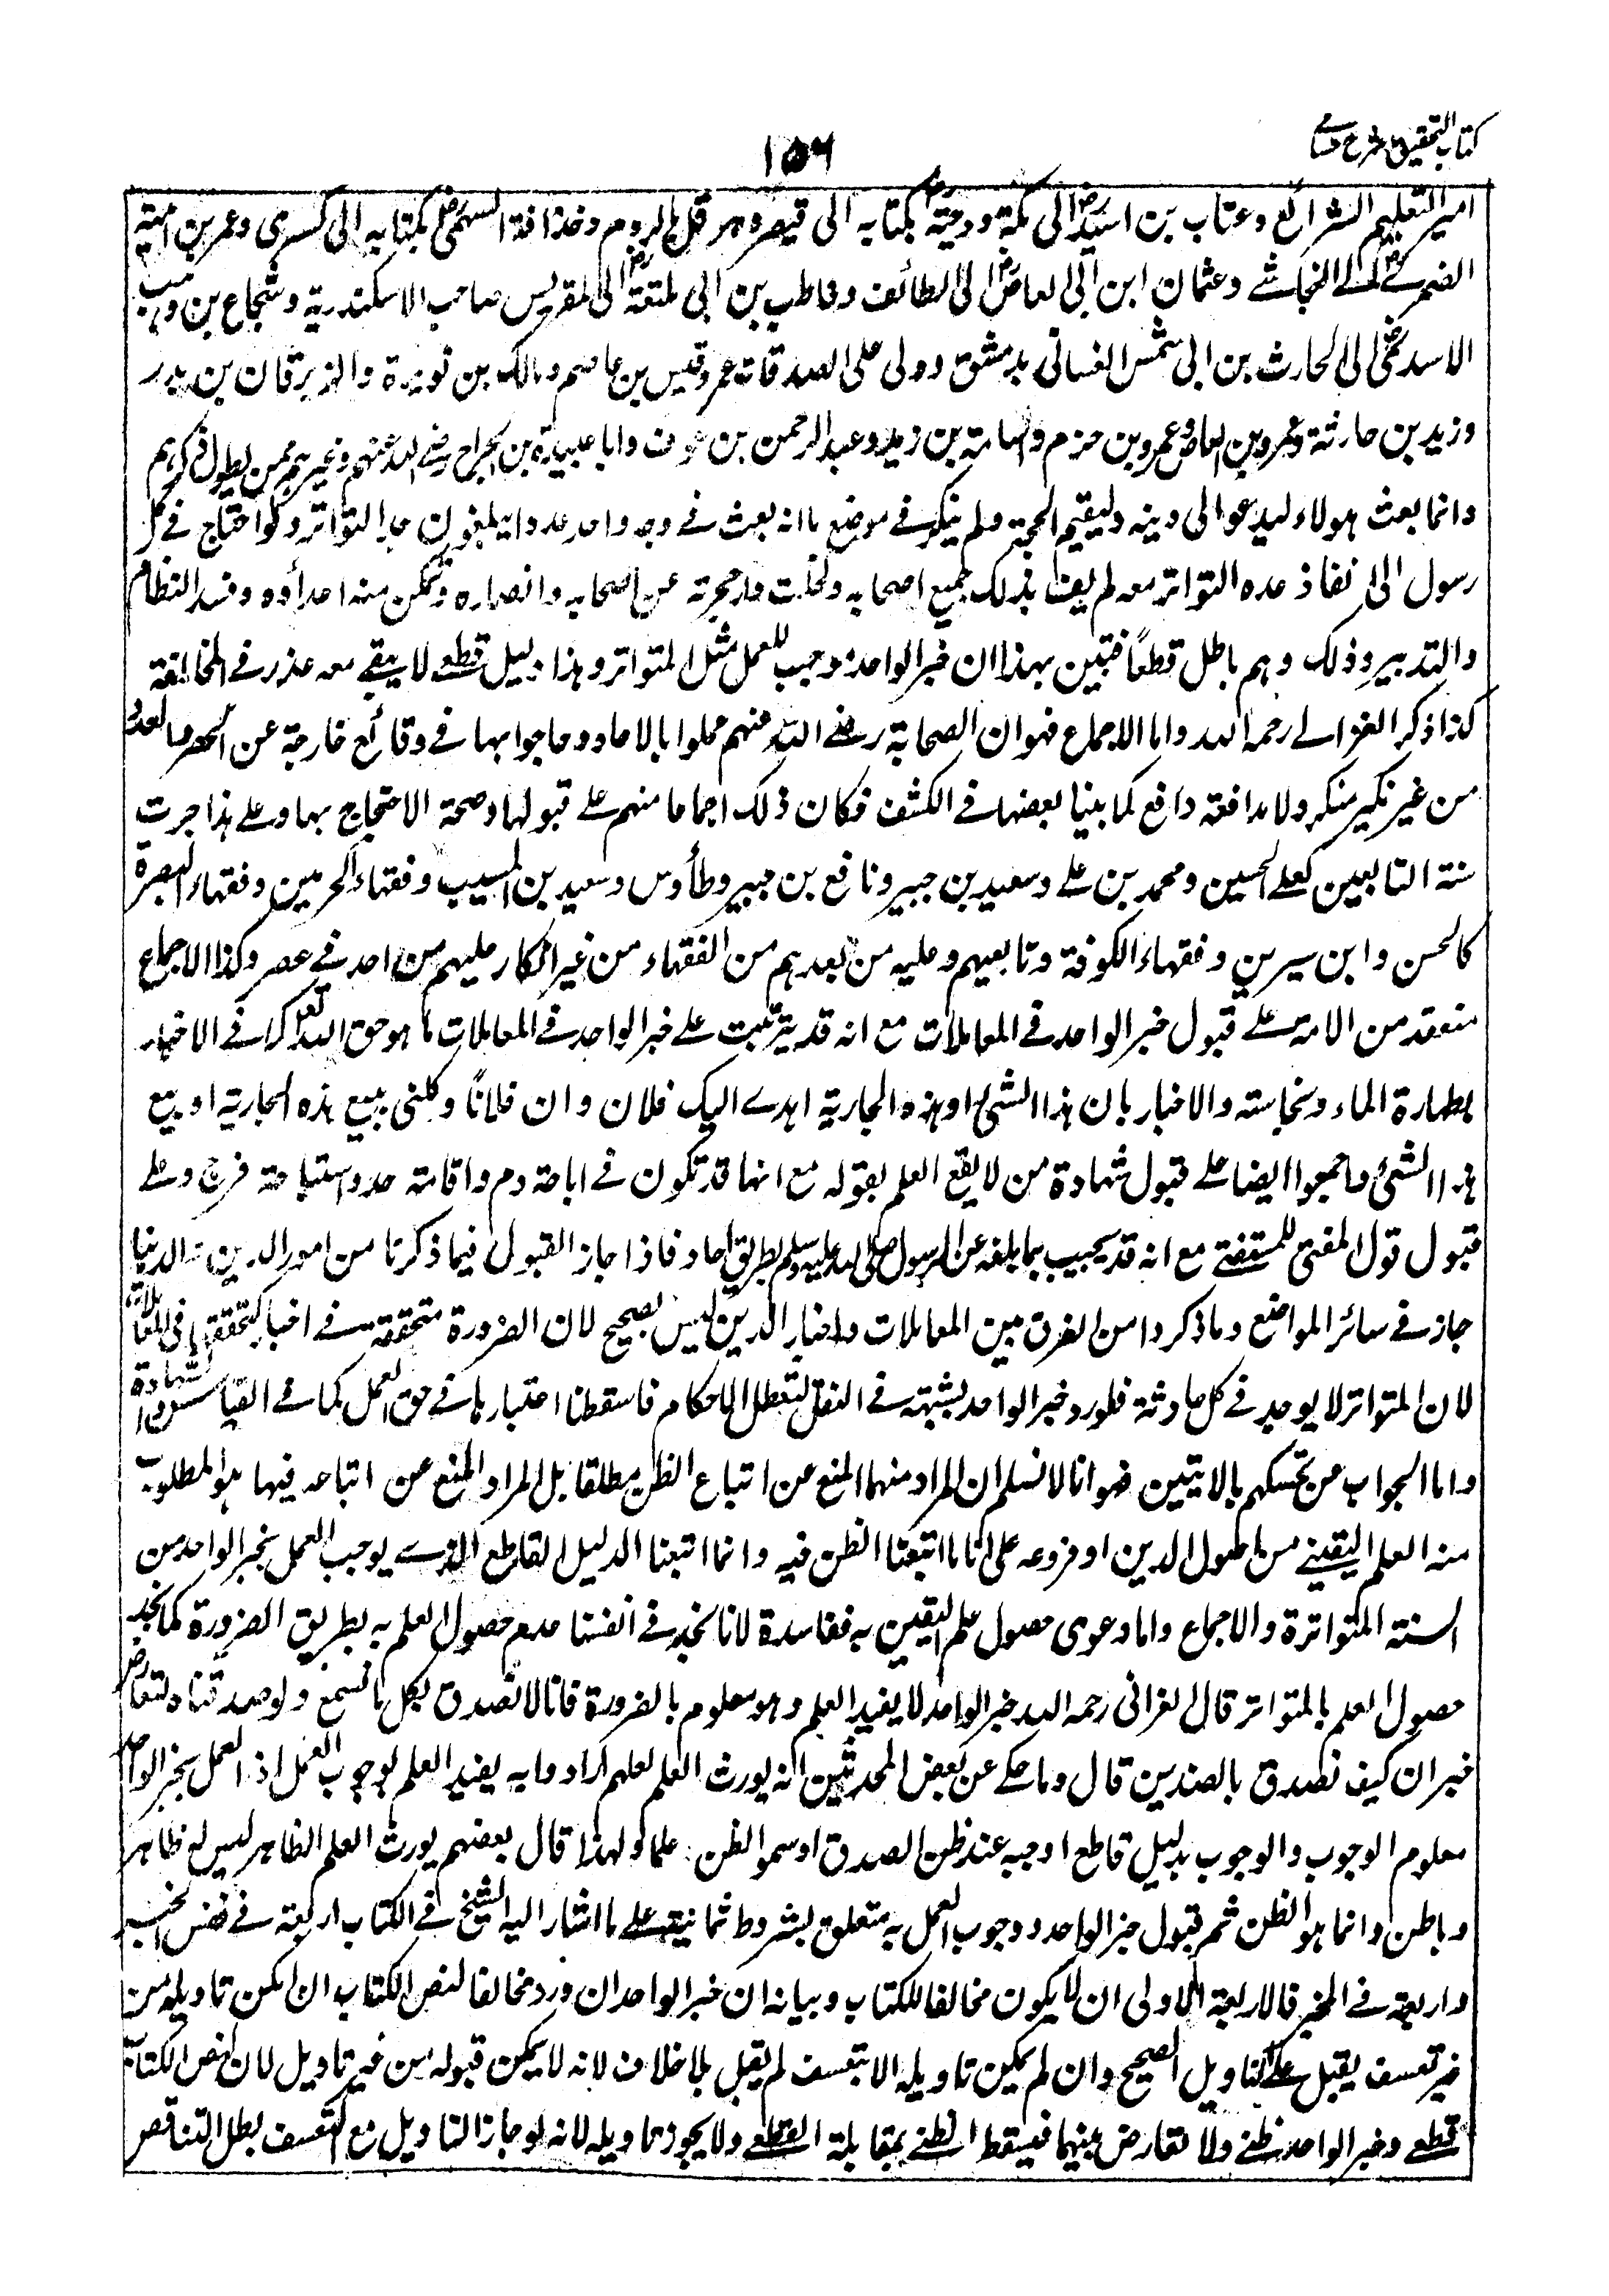 كتاب التحقيق شرح حسامى
١٥٦
اميرا لتعليم الشرائع وعتاب بن اسيد رض الى مكة ودحية رض بكتابه الى قيصر وهو هرقل بالروم وحذافة السهمى رض بكتابه الى كسرى وعمر بن امية
الضمرے رض الے النجاشے وعثمان ابن ابى العاص رض الى الطائف وحاطب بن ابى بلتعة رض الى المقوقس صاحب الاسكندرية وشجاع بن وهب
الاسدى رض الى الحارث بن ابى شمس الغسانى بدمشق وولى على الصدقات عمر وقيس بن عاصم ومالك بن نويرة والزبرقان بن بدر
وزيد بن حارثة وعمرو بن العاص وعمرو بن حزم واسامة بن زيد وعبد الرحمن بن عوف وابا عبيدة بن الجراح رضے الله عنهم وغيرهم ممن يطول ذكرهم
وانما بعث هولاء ليدعوا الى دينه وليقيم الحجة ولم ينكر فے موضع ما انه بعث فے وجه واحد عددا يبلغون حد التواتر ولو احتاج فے كل
رسول الى انفاذ عدد التواتر معه لم يف بذلك جميع اصحابه ولخلت دار هجرته عن اصحابه وانصاره وتمكن منه اعداؤه وفسد النظام
والتدبير وذلك وهم باطل قطعاً فتبين بهذا ان خبر الواحد موجب للعمل مثل المتواتر وهذا دليل قطعے لا يبقے معه عذر فے المخالفة
كذا ذكر الغزالے رحمه الله واما الاجماع فهو ان الصحابة رضے الله عنهم عملوا بالاحاد وحاجوا بها فے وقائع خارجة عن الحصر والعد
من غير نكير منكر ولا مدافعة دافع كما بينا بعضها فے الكشف فكان ذلك اجماعا منهم علے قبولها وصحة الاحتجاج بها وعلے هذا جرت
سنة التابعين كعلے الحسين ومحمد بن علے وسعيد بن جبير ونافع بن جبير وطاؤس وسعيد بن المسيب وفقهاء الحرمين وفقهاء البصرة
كالحسن وابن سيرين وفقهاء الكوفة وتابعيهم وعليه من بعدهم من الفقهاء من غير انكار عليهم من احد فے عصر وكذا الاجماع
منعقد من الامة علے قبول خبر الواحد فے المعاملات مع انه قد يترتب علے خبر الواحد فے المعاملات ما هو حق الله تعالى كما فے الاخبار
بطهارة الماء ونجاسته والاخبار بان هذا الشئ او هذه الجارية اهدے اليك فلان وان فلاناً وكلنى ببيع هذه الجارية او بيع
هذا الشئ واجمعوا ايضا علے قبول شهادة من لا يقع العلم بقوله مع انها قد تكون فے اباحة دم واقامة حد واستباحة فرج وعلے
قبول قول المفتى للمستفتے مع انه قد يجيب بما بلغه عن الرسول صلى الله عليه وسلم بطريق احاد فاذا جاز القبول فيما ذكرنا من امور الدين والدنيا
جاز فے سائر المواضع وما ذكروا من الفرق بين المعاملات واخبار الدين ليس بصحيح لان الضرورة متحققة فے اخبار كتحققها فى المعاملات
لان المتواتر لا يوجد فے كل حادثة فلو رد خبر الواحد بشبهته فے النقل لتعطل الاحكام فاسقطنا اعتبارها فے حق العمل كما فے القياس والشهادة
واما الجواب عن تمسكهم بالايتين فهو انا لا نسلم ان المراد منهما المنع عن اتباع الظن مطلقا بل المراد المنع عن اتباعه فيها هو المطلوب
منه العلم اليقينے من اصول الدين او فروعه على انا ما اتبعنا الظن فيه وانما اتبعنا الدليل القاطع الذے يوجب العمل بخبر الواحد من
السنة المتواترة والاجماع واما دعوى حصول علم اليقين به ففاسدة لانا نجد فے انفسنا عدم حصول العلم به بطريق الضرورة كما نجد
حصول العلم بالمتواتر قال الغزالى رحمه الله خبر الواحد لا يفيد العلم وهو معلوم بالضرورة فانا لا نصدق بكل ما نسمع ولو صدقنا وتعارض
خبران كيف نصدق بالضدين قال وما حكے عن بعض المحدثين انه يورث العلم لعلهم ارادوا به يفيد العلم لوجوب العمل اذ العمل بخبر الواحد
معلوم الوجوب والوجوب بدليل قاطع اوجبه عند ظن الصدق او سموا الظن علما ولهذا قال بعضهم يورث العلم الظاهر ليس له ظاهر
وباطن وانما هو الظن ثم قبول خبر الواحد ووجوب العمل به متعلق بشروط ثمانية علے ما اشار اليه الشيخ فے الكتاب اربعة فے نفس الخبر
واربعة فے المخبر فالاربعة الاولى ان لا يكون مخالفا للكتاب وبيانه ان خبر الواحد ان ورد مخالفا لنص الكتاب ان امكن تاويله من
غير تعسف يقبل علے التاويل الصحيح وان لم يمكن تاويله الا بتعسف لم يقبل بلا خلاف لانه لا يمكن قبوله من غير تاويل لان نص الكتاب
قطعے وخبر الواحد ظنے ولا تعارض بينهما فيسقط الظنے بمقابلة القطعے ولا يجوز تاويله لانه لو جاز التاويل مع التعسف بطل التناقض